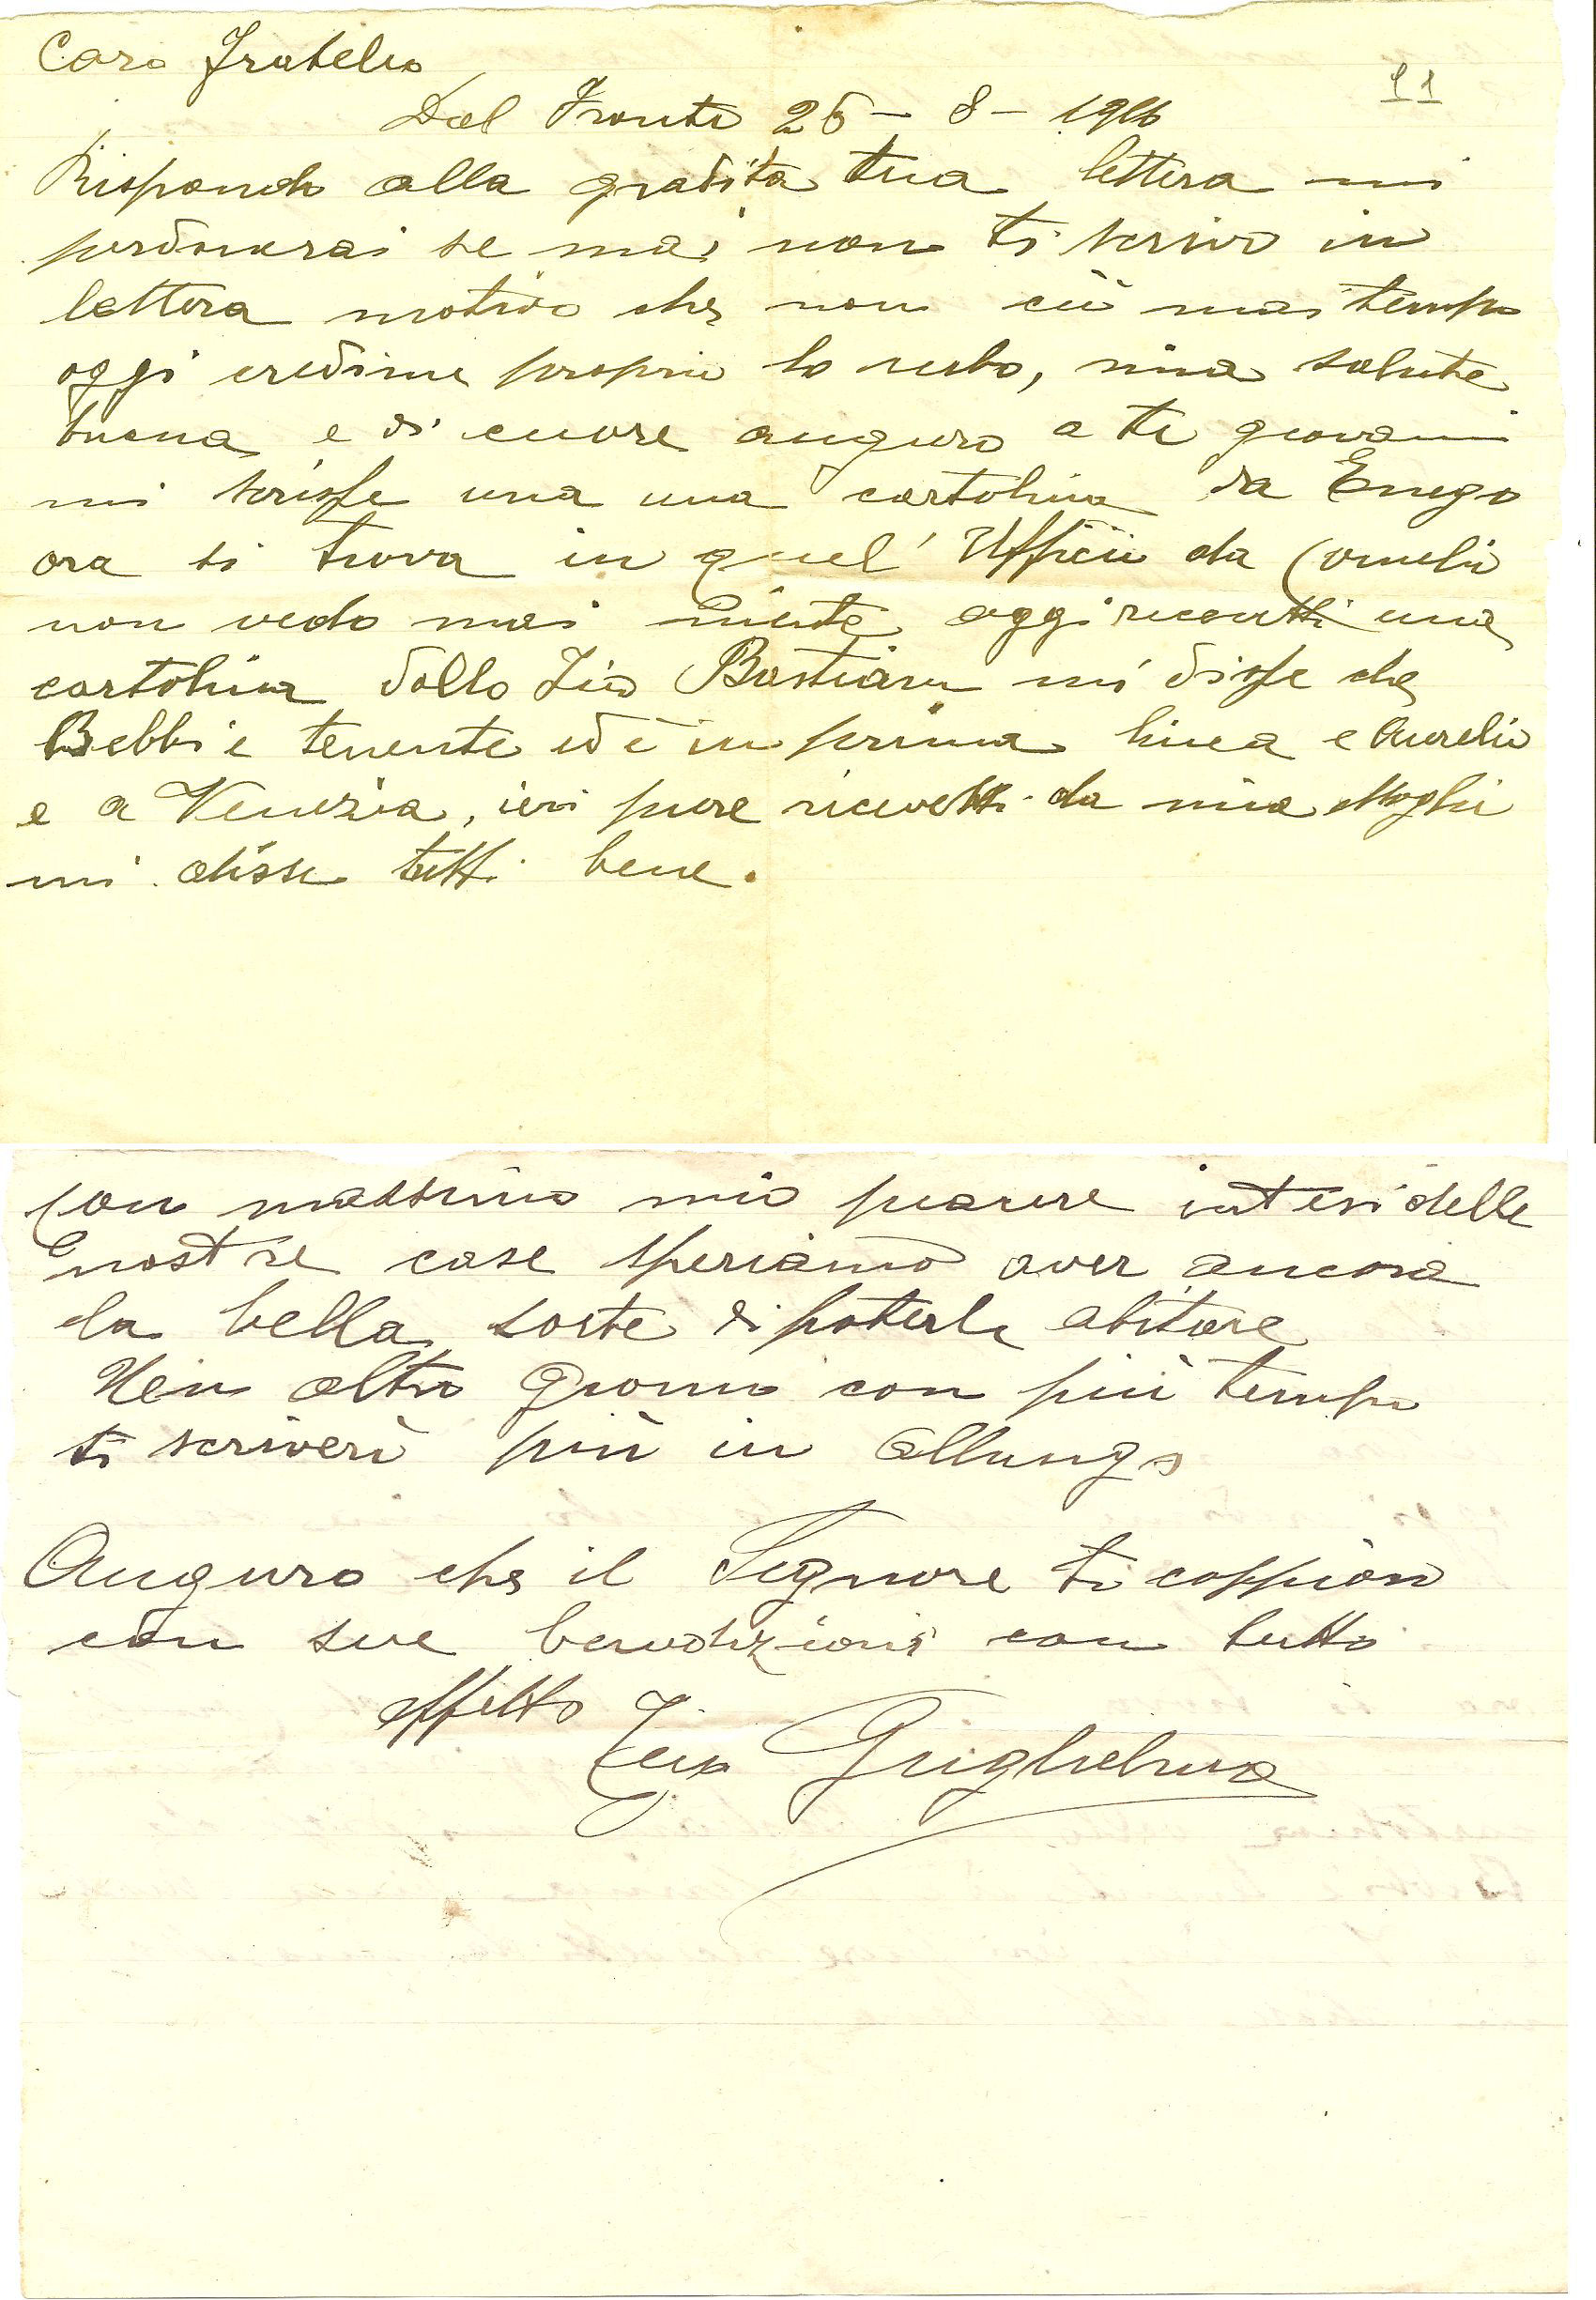 Caro Fratello
11
Dal Fronte 26 - 8 - 1916
Rispondo alla gradita tua lettera mi
perdonerai se mai non ti scrivo in
lettera motivo che non ciè mai tempo
oggi credime proprio lo rubo, mia salute
buona e di cuore auguro a te giovani
mi scrisse una una cartolina da Enego
ora si trova in quel' Ufficio da Cornelio
non vedo mai niente oggi ricevetti una
cartolina dallo Zio Bastian mi disse che
Bebbi e tenente ed è in prima linea e Aurelio
e a Venezia, ieri pure ricevetti da mia Moglie
mi disse tutti bene.
Con massimo mio piacere intesi delle
nostre case speriamo aver ancora
la bella sorte di poterle abitare
Nein altro Giorno con più tempo
ti scriverò più in allungo
Auguro che il Signore ti
con sue benedizioni con tutto
affetto Guglielmo